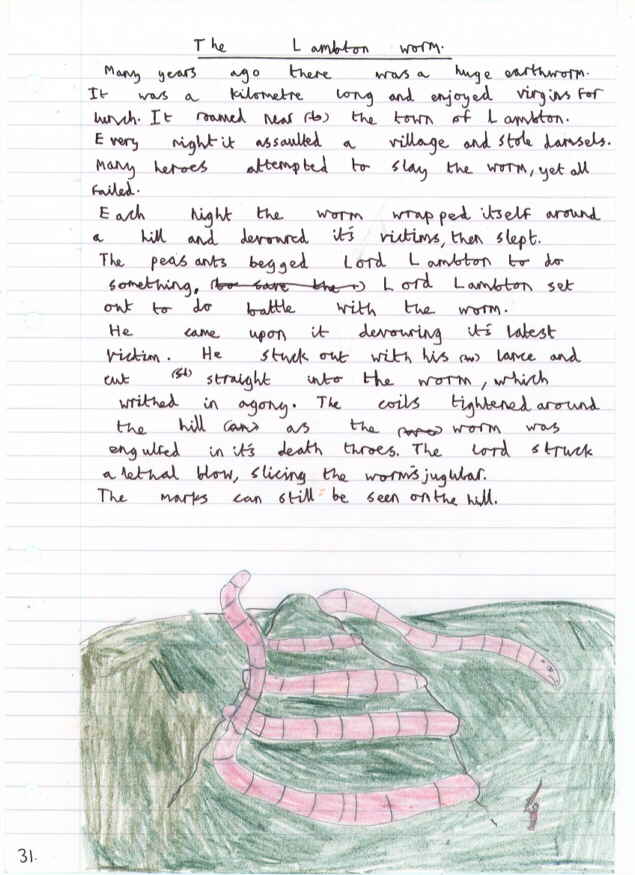 The Lambton worm.
Many years ago there was a huge earthworm.
It was a kilometre long and enjoyed virgins for
lunch. It roamed near (to) the town of Lambton.
Every night it assaulted a village and stole damsels.
Many heroes attempted to slay the worm, yet all
failed.
Each night the worm wrapped itself around
a hill and devoured it's victims, then slept.
The peasants begged Lord Lambton to do
something, (to save the) Lord Lambton set
out to do battle with the worm.
He came upon it devouring it's latest
victim. He stuck out with his lance and
cut (st) straight into the worm, which
writhed in agony. The coils tightened around
the hill (an) as the worm was
engulfed in it's death throes. The lord struck
a lethal blow, slicing the worm's jugular.
The marks can still be seen on the hill.
31.